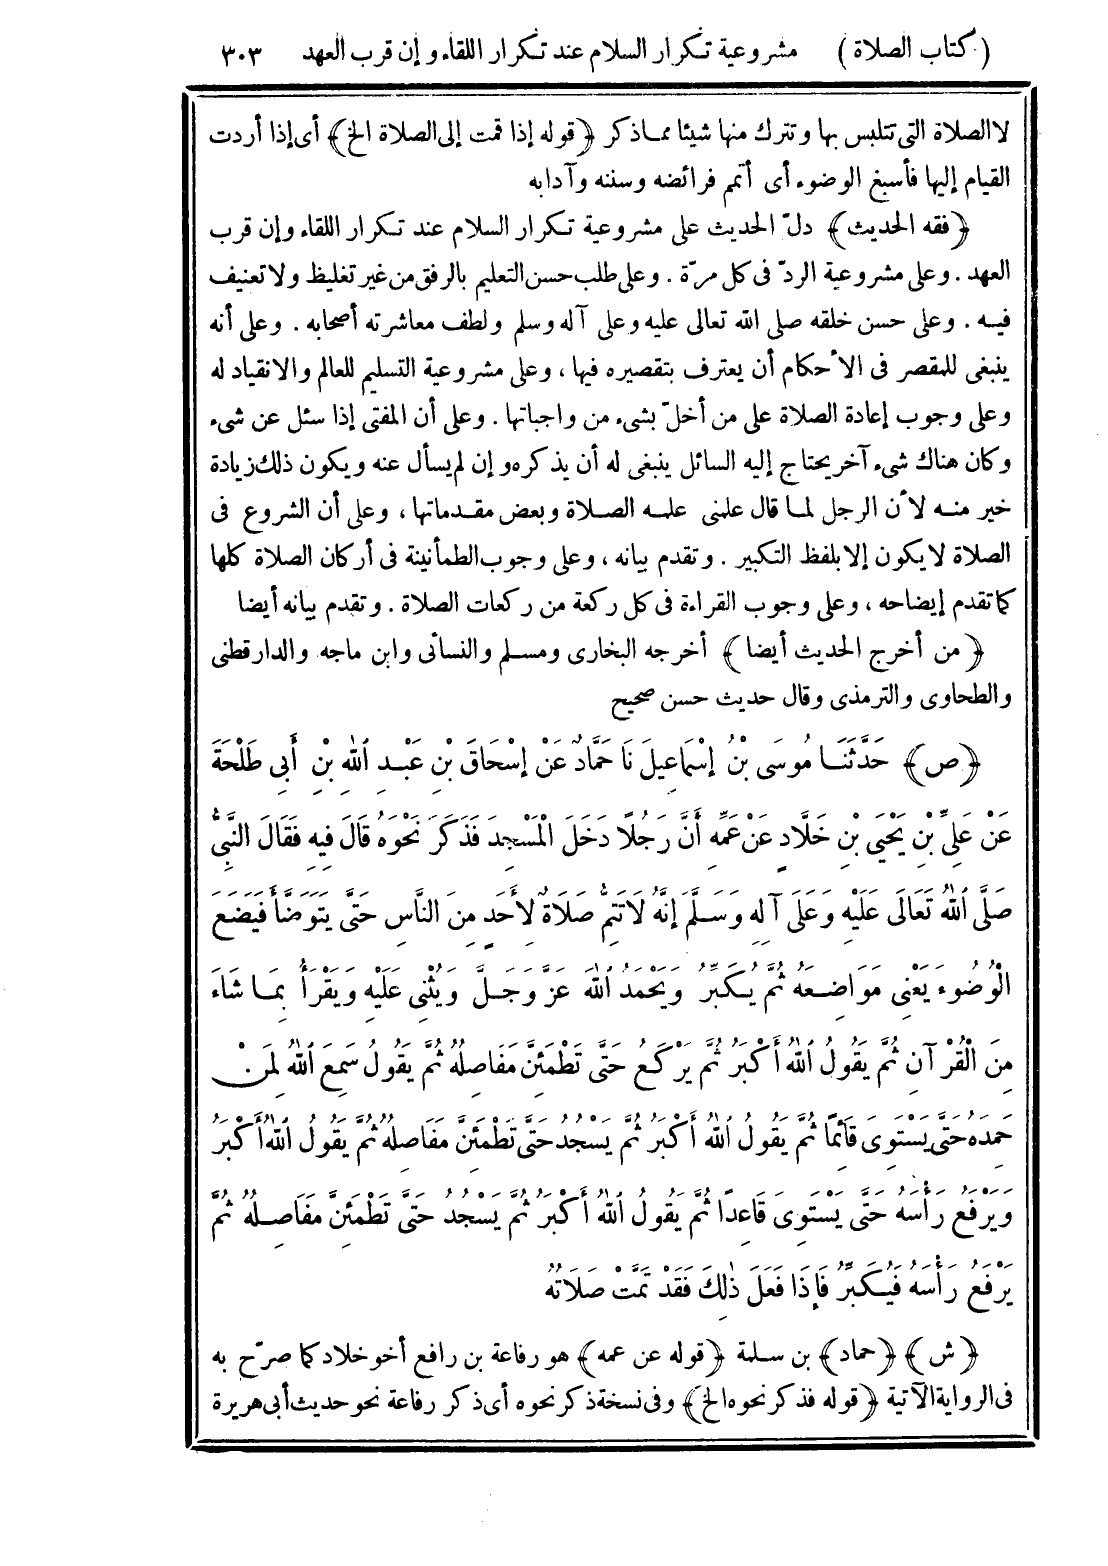 ( كتاب الصلاة ) مشروعية تكرار السلام عند تكرار اللقاء وإن قرب العهد ٣٠٣
لا الصلاة التى تتلبس بها وتترك منها شيئا مماذكر ﴿قوله إذا قمت إلى الصلاة الخ﴾ أى إذا أردت
القيام إليها فأسبغ الوضوء أى أتمم فرائضه وسننه وآدابه
﴿فقه الحديث﴾ دلّ الحديث على مشروعية تكرار السلام عند تكرار اللقاء وإن قرب
العهد . وعلى مشروعية الردّ فى كل مرّة . وعلى طلب حسن التعليم بالرفق من غير تغليظ ولا تعنيف
فيه . وعلى حسن خلقه صلى الله تعالى عليه وعلى آله وسلم ولطف معاشرته أصحابه . وعلى أنه
ينبغى للمقصر فى الأحكام أن يعترف بتقصيره فيها ، وعلى مشروعية التسليم للعالم والانقياد له
وعلى وجوب إعادة الصلاة على من أخلّ بشىء من واجباتها . وعلى أن المفتى إذا سئل عن شىء
وكان هناك شىء آخر يحتاج إليه السائل ينبغى له أن يذكره وإن لم يسأل عنه ويكون ذلك زيادة
خير منه لأن الرجل لما قال علمنى علمه الصلاة وبعض مقدماتها ، وعلى أن الشروع فى
الصلاة لا يكون إلا بلفظ التكبير . وتقدم بيانه ، وعلى وجوب الطمأنينة فى أركان الصلاة كلها
كما تقدم إيضاحه ، وعلى وجوب القراءة فى كل ركعة من ركعات الصلاة . وتقدم بيانه أيضا
﴿من أخرج الحديث أيضا﴾ أخرجه البخارى ومسلم والنسائى وابن ماجه والدارقطنى
والطحاوى والترمذى وقال حديث حسن صحيح
﴿ص﴾ حَدَّثَنَا مُوسَى بْنُ إِسْمَاعِيلَ نَا حَمَّادٌ عَنْ إِسْحَاقَ بْنِ عَبْدِ اللهِ بْنِ أَبِى طَلْحَةَ
عَنْ عَلِىِّ بْنِ يَحْيَى بْنِ خَلَّادٍ عَنْ عَمِّهِ أَنَّ رَجُلًا دَخَلَ الْمَسْجِدَ فَذَكَرَ نَحْوَهُ قَالَ فِيهِ فَقَالَ النَّبِىُّ
صَلَّى اللهُ تَعَالَى عَلَيْهِ وَعَلَى آلِهِ وَسَلَّمَ إِنَّهُ لَا تَتِمُّ صَلَاةٌ لِأَحَدٍ مِنَ النَّاسِ حَتَّى يَتَوَضَّأَ فَيَضَعَ
الْوُضُوءَ يَعْنِى مَوَاضِعَهُ ثُمَّ يُكَبِّرُ وَيَحْمَدُ اللهَ عَزَّ وَجَلَّ وَيُثْنِى عَلَيْهِ وَيَقْرَأُ بِمَا شَاءَ
مِنَ الْقُرْآنِ ثُمَّ يَقُولُ اللهُ أَكْبَرُ ثُمَّ يَرْكَعُ حَتَّى تَطْمَئِنَّ مَفَاصِلُهُ ثُمَّ يَقُولُ سَمِعَ اللهُ لِمَنْ
حَمِدَهُ حَتَّى يَسْتَوِىَ قَائِمًا ثُمَّ يَقُولُ اللهُ أَكْبَرُ ثُمَّ يَسْجُدُ حَتَّى تَطْمَئِنَّ مَفَاصِلُهُ ثُمَّ يَقُولُ اللهُ أَكْبَرُ
وَيَرْفَعُ رَأْسَهُ حَتَّى يَسْتَوِىَ قَاعِدًا ثُمَّ يَقُولُ اللهُ أَكْبَرُ ثُمَّ يَسْجُدُ حَتَّى تَطْمَئِنَّ مَفَاصِلُهُ ثُمَّ
يَرْفَعُ رَأْسَهُ فَيُكَبِّرُ فَإِذَا فَعَلَ ذٰلِكَ فَقَدْ تَمَّتْ صَلَاتُهُ
﴿ش﴾ ﴿حماد﴾ بن سلمة ﴿قوله عن عمه﴾ هو رفاعة بن رافع أخو خلاد كما صرّح به
فى الرواية الآتية ﴿قوله فذكر نحوه الخ﴾ وفى نسخة ذكر نحوه أى ذكر رفاعة نحو حديث أبى هريرة